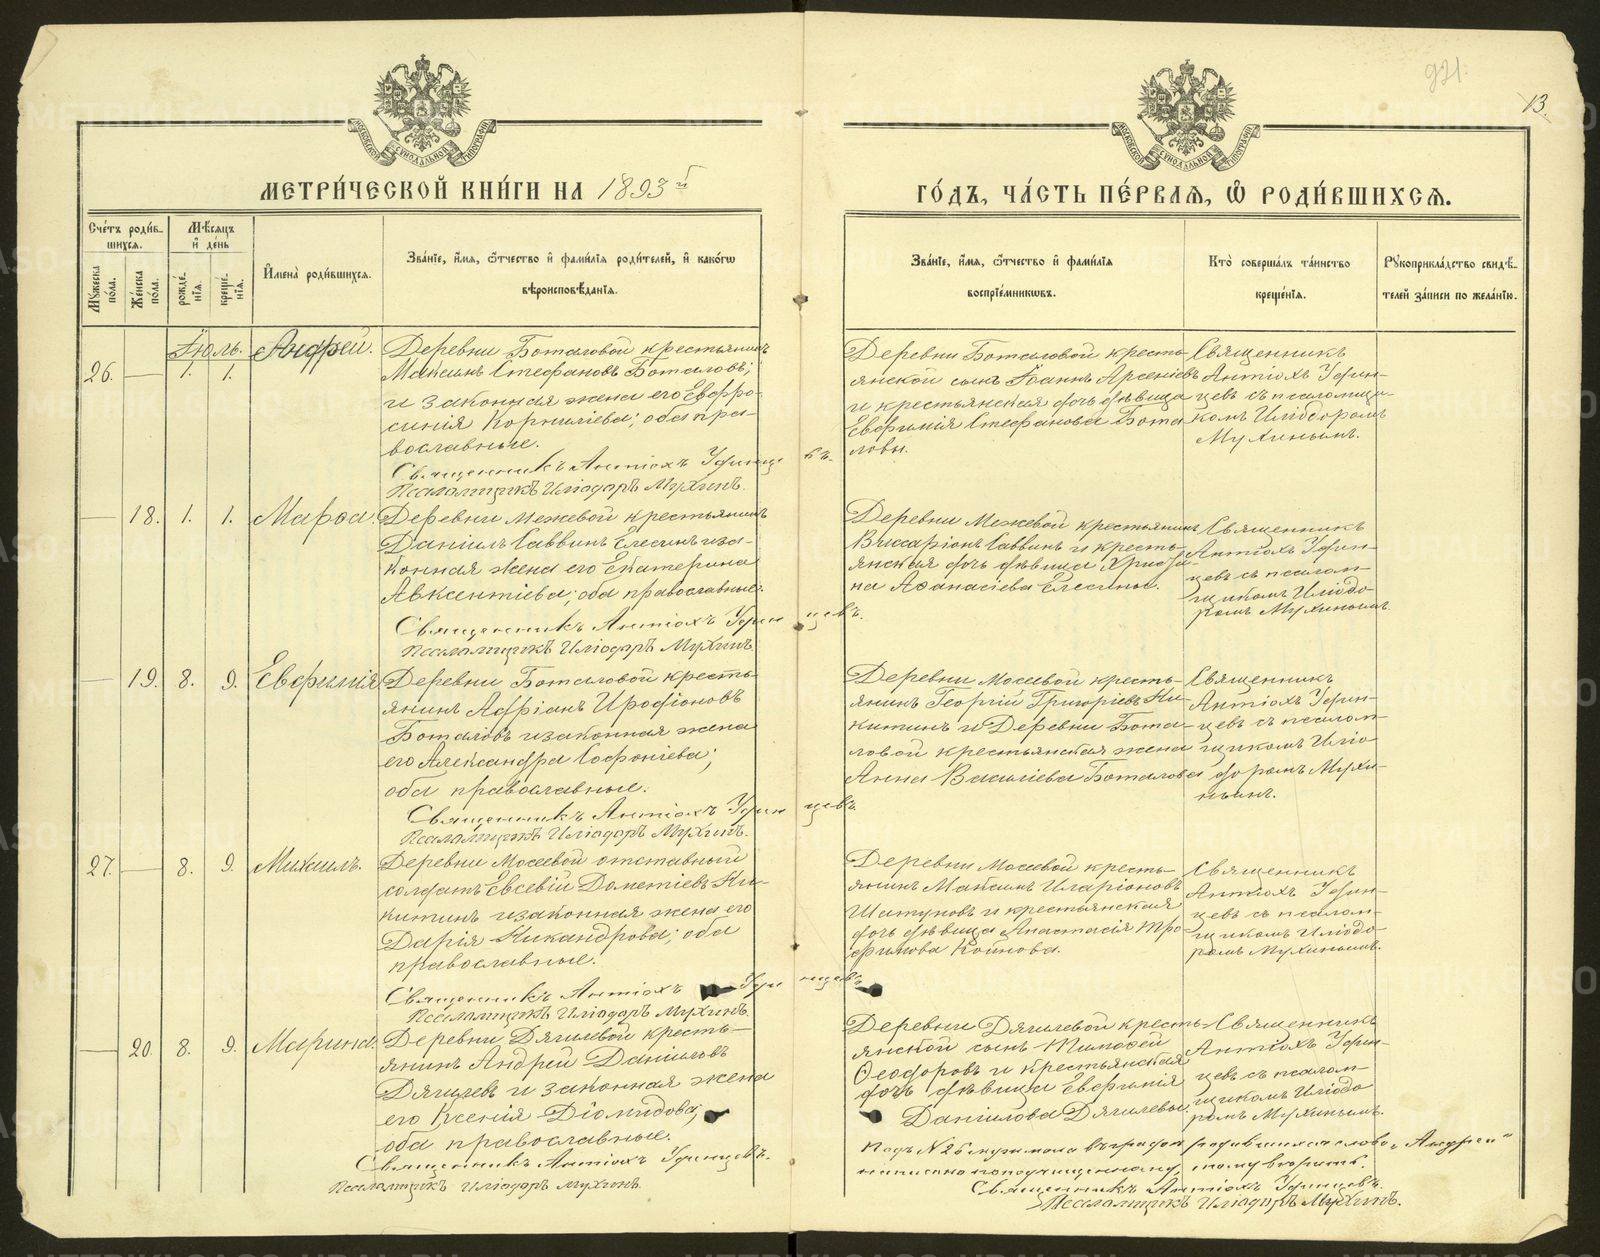 921.
13.
МОСКОВСКОЙ СѴНОДАЛЬНОЙ ТИПОГРАФІИ
МОСКОВСКОЙ СѴНОДАЛЬНОЙ ТИПОГРАФІИ
МЕТРИ́ЧЕСКОЙ КНИ́ГИ НА 1893й
ГО́ДЪ, ЧА́СТЬ ПЕ́РВАѦ, Ѽ РОДИ́ВШИХСѦ.
Сче́тъ роди́в-
шихсѧ.
Мѣсѧцъ
и҆ де́нь
Мꙋжеска
по́ла.
Же́нска
по́ла.
рожде́-
нїѧ.
креще́-
нїѧ.
И҆мена̀ роди́вшихсѧ.
Зва́нїе, и҆́мѧ, ѻ҆́тчество и҆ фами́лїѧ роди́телей, и҆ како́гѡ
вѣроисповѣ́данїѧ.
Зва́нїе, и҆́мѧ, ѻ҆́тчество и҆ фами́лїѧ
воспрїе́мникѡвъ.
Кто̀ соверша́лъ та́инство
креще́нїѧ.
Рꙋкоприкла́дство свидѣ́-
телей за́писи по жела́нїю.
Іюль.
26. — 1. 1.
Андрей.
Деревни Боталовой крестьянинъ
Максимъ Стефановъ Боталовъ;
и законная жена его Евфро-
синія Корнилiева; оба пра-
вославные.
Священникъ Антіохъ Уфинцевъ.
Псаломщикъ Иліодоръ Мухинъ.
Деревни Боталовой кресть-
янской сынъ Іоаннъ Арсеніевъ
и крестьянская дочь дѣвица
Евфимія Стефанова Бота-
ловы.
Священникъ
Антіохъ Уфин-
цевъ съ псаломщи-
комъ Иліодоромъ
Мухинымъ.
— 18. 1. 1.
Марѳа.
Деревни Межевой крестьянинъ
Даніилъ Саввинъ Елесинъ и за-
конная жена его Екатерина
Авксентіева; оба православные.
Священникъ Антіохъ Уфинцевъ.
Псаломщикъ Иліодоръ Мухинъ.
Деревни Межевой крестьянинъ
Виссаріонъ Саввинъ и кресть-
янская дочь дѣвица Христи-
на Аѳанасіева Елесины.
Священникъ
Антіохъ Уфин-
цевъ съ псалом-
щикомъ Иліодо-
ромъ Мухинымъ.
— 19. 8. 9.
Евфимія
Деревни Боталовой кресть-
янинъ Адріанъ Иродіоновъ
Боталовъ и законная жена
его Александра Софоніева;
оба православные.
Священникъ Антіохъ Уфинцевъ.
Псаломщикъ Иліодоръ Мухинъ.
Деревни Мосевой кресть-
янинъ Георгій Григоріевъ Ни-
китинъ и Деревни Бота-
ловой крестьянская жена
Анна Василіева Боталова
Священникъ
Антіохъ Уфин-
цевъ съ псалом-
щикомъ Иліо-
доромъ Мухи-
нымъ.
27. — 8. 9.
Михаилъ.
Деревни Мосевой отставный
солдатъ Евсевій Дометіевъ Ни-
китинъ и законная жена его
Дарія Никандрова; оба
православные.
Священникъ Антіохъ Уфинцевъ.
Псаломщикъ Иліодоръ Мухинъ.
Деревни Мосевой кресть-
янинъ Максимъ Иларіоновъ
Шатуновъ и крестьянская
дочь дѣвица Анастасія Тро-
фимова Койнова.
Священникъ
Антіохъ Уфин-
цевъ съ псалом-
щикомъ Иліодо-
ромъ Мухинымъ.
— 20. 8. 9.
Марина.
Деревни Дягилевой кресть-
янинъ Андрей Даніиловъ
Дягилевъ и законная жена
его Ксенія Діомидова;
оба православные.
Священникъ Антіохъ Уфинцевъ.
Псаломщикъ Иліодоръ Мухинъ.
Деревни Дягилевой кресть-
янской сынъ Тимоѳей
Ѳеодоровъ и крестьянская
дочь дѣвица Евфимія
Даніилова Дягилевы.
Священникъ
Антіохъ Уфин-
цевъ съ псалом-
щикомъ Иліодо-
ромъ Мухинымъ.
Подъ № 26 муж. пола въ графѣ родившихся слово „Андрей"
написано по подчищенному, тому вѣрить.
Священникъ Антіохъ Уфинцевъ.
Псаломщикъ Иліодоръ Мухинъ.